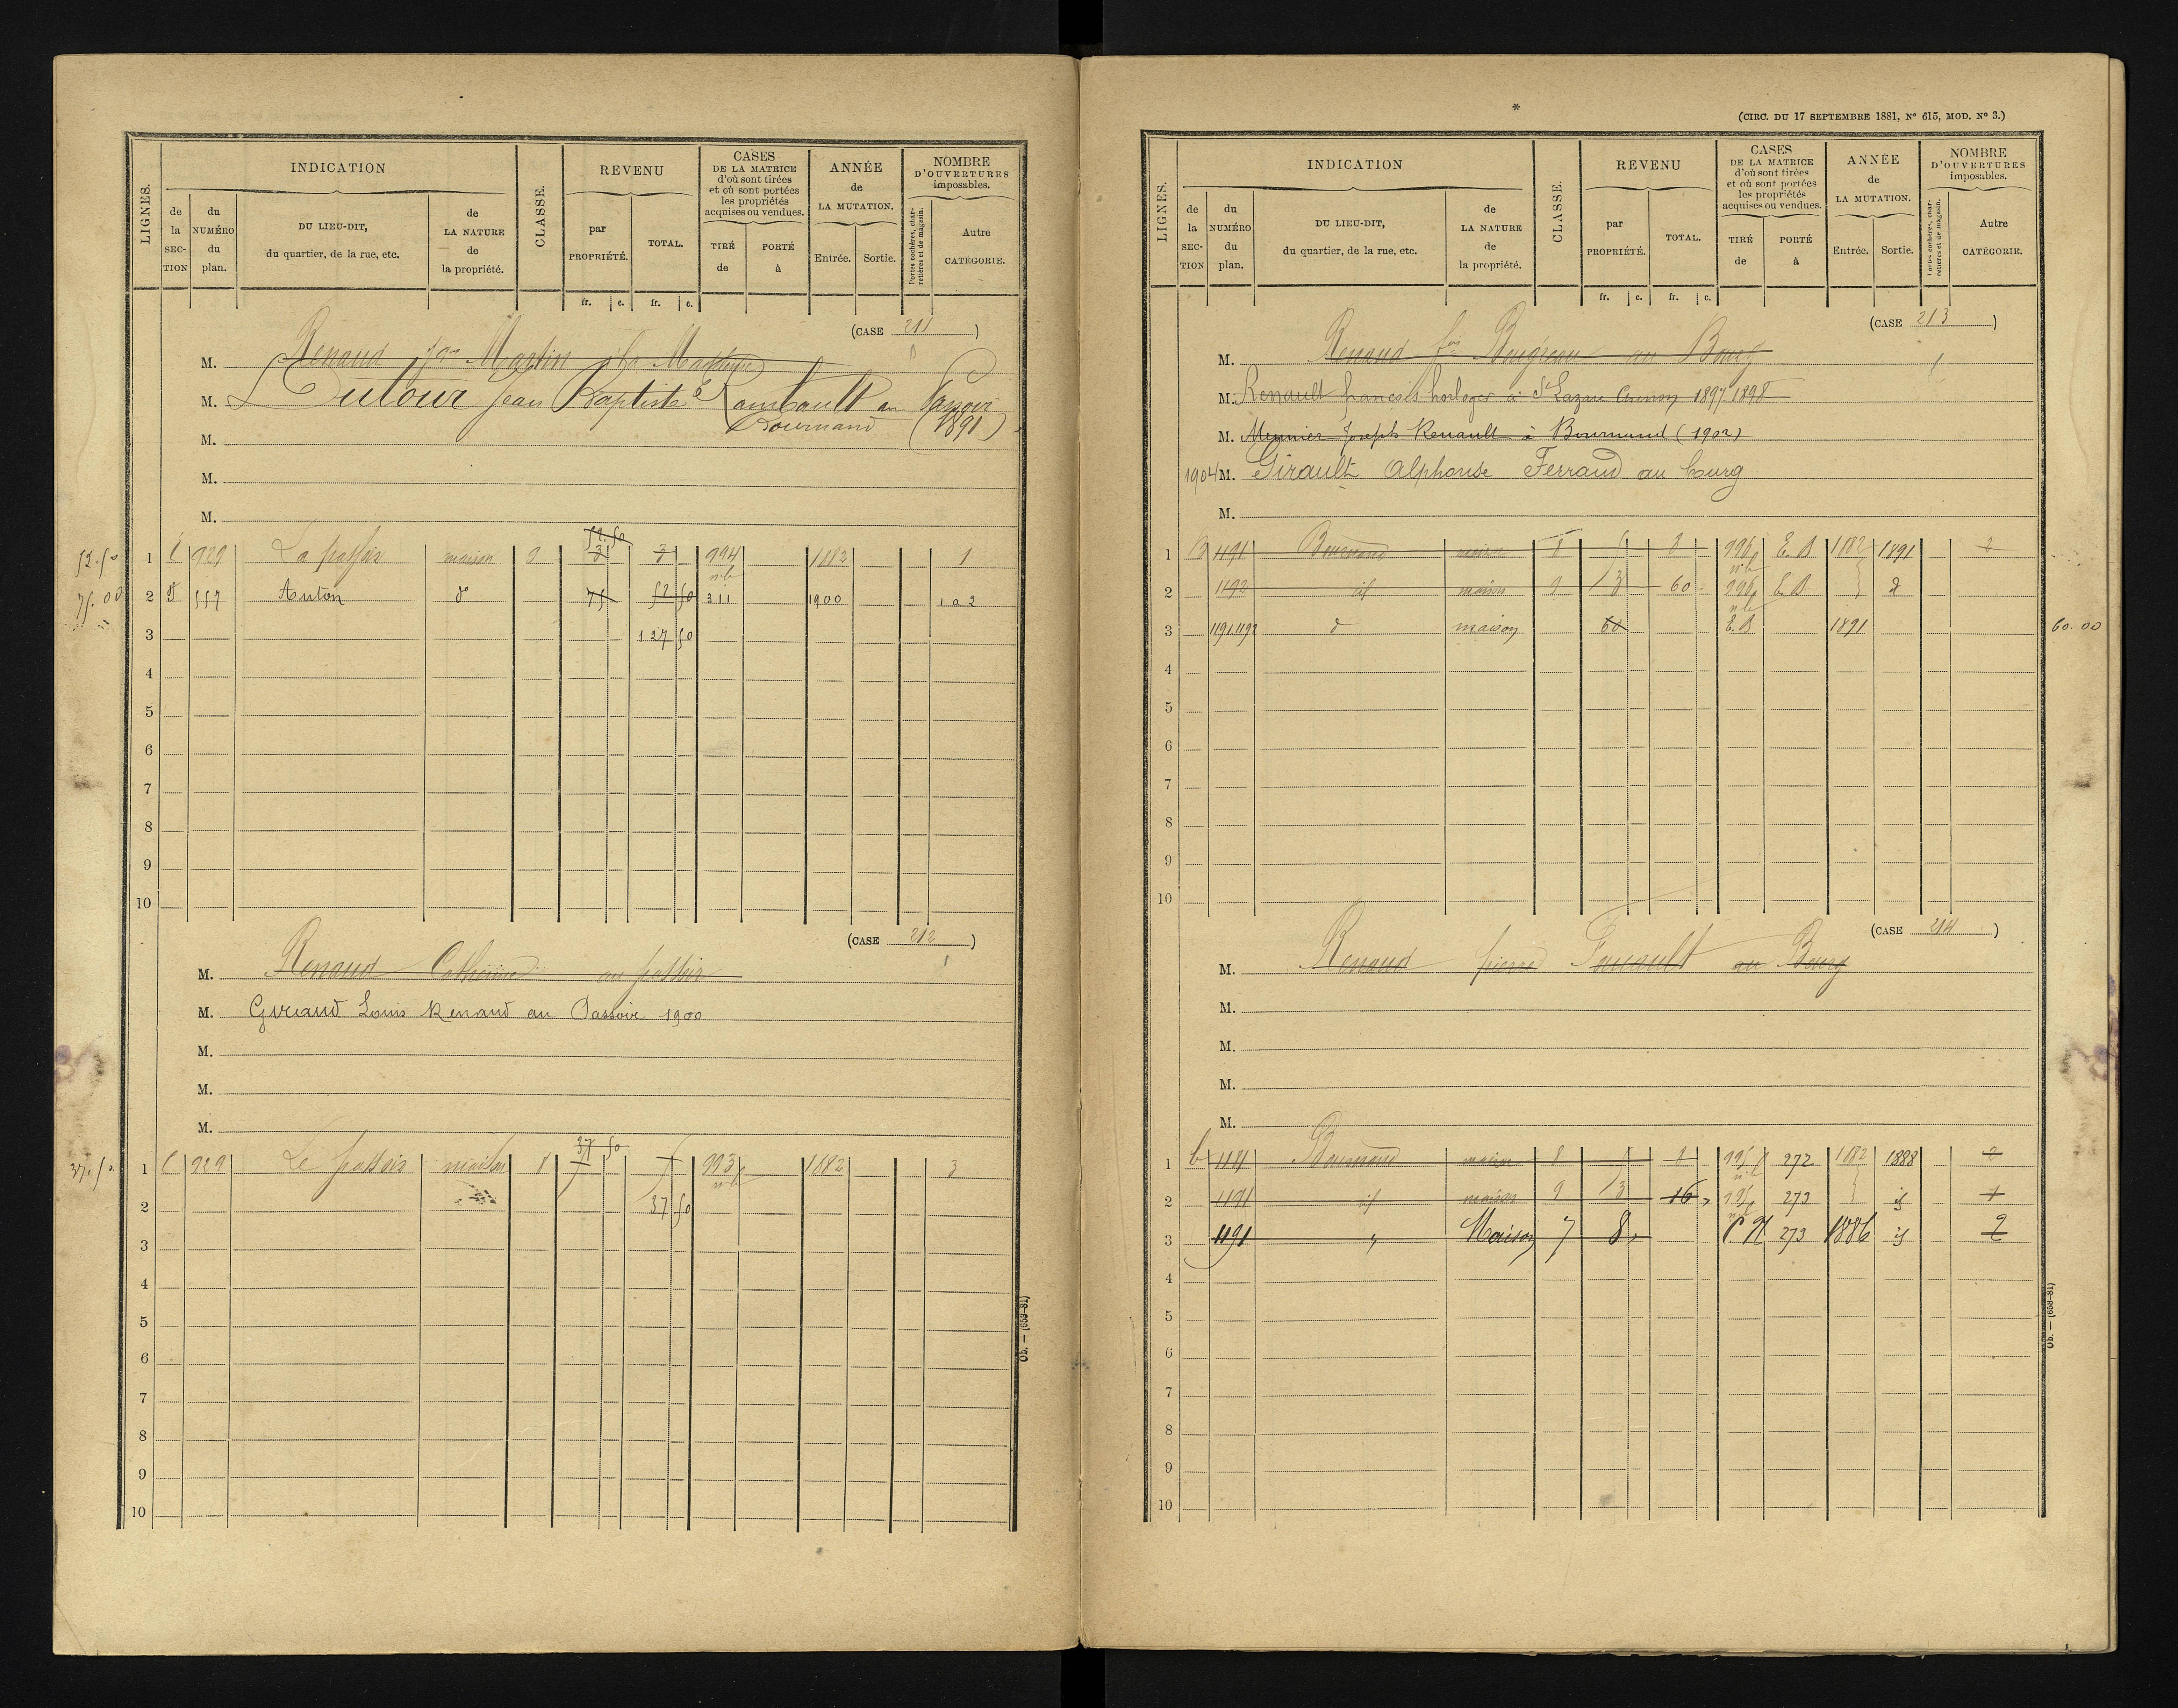 LIGNES.
INDICATION
de la SECTION
du NUMÉRO du plan.
DU LIEU-DIT, du quartier, de la rue, etc.
de LA NATURE de la propriété.
CLASSE.
REVENU
par PROPRIÉTÉ.
TOTAL.
CASES DE LA MATRICE d'où sont tirées et où sont portées les propriétés acquises ou vendues.
TIRÉ de
PORTÉ à
ANNÉE de LA MUTATION.
Entrée. Sortie.
NOMBRE D'OUVERTURES imposables.
Portes cochères, charretières et de magasin.
Autre CATÉGORIE.
fr. c. fr. c.
(CASE 211)
M. Renaud Martin
M. Dutour Jean Baptiste Rambault au Passoir
M. Bournand (1891)
M.
M.
52.50 1 C 929 maison 9 52.50 3 3 994 1882 1
75.00 2 557 Anton do 75 52 50 311 1900 1 a 2
3 127 50
4
5
6
7
8
9
10
(CASE 212)
M. Renaud Catherine au passoir
M. Guriaud Louis Renaud au Passoir 1900
M.
M.
M.
37.50 1 C 929 Le passoir maison 8 37 50 993 1882 3
2 37 50
3
4
5
6
7
8
9
10
Ob. — (659-81)
*
(CIRC. DU 17 SEPTEMBRE 1881, No 615, MOD. No 3.)
LIGNES.
INDICATION
de la SECTION
du NUMÉRO du plan.
DU LIEU-DIT, du quartier, de la rue, etc.
de LA NATURE de la propriété.
CLASSE.
REVENU
par PROPRIÉTÉ.
TOTAL.
CASES DE LA MATRICE d'où sont tirées et où sont portées les propriétés acquises ou vendues.
TIRÉ de
PORTÉ à
ANNÉE de LA MUTATION.
Entrée. Sortie.
NOMBRE D'OUVERTURES imposables.
Portes cochères, charretières et de magasin.
Autre CATÉGORIE.
fr. c. fr. c.
(CASE 213)
M. Renaud fois Bougreau au Bourg
M. Renault francois horloger à St Lazare Chinon 1897 1898
M. Meunier Joseph Renault à Bournand (1902)
1904 M. Girault Alphonse Ferrand au bourg
M.
1 B 1191 Bournand maison 8 8 996 E. B 1882 1891 2
2 1192 id maison 9 3 60 996 E B 2
3 1191.1192 d maison 60 E. B 1891 60.00
4
5
6
7
8
9
10
(CASE 214)
M. Renaud pierre Foucault au Bourg
M.
M.
M.
M.
1 b 1181 Bournand maison 8 8 272 1882 1888 2
2 1191 id maison 9 3 16 273 id 1
3 1191 " Maison 7 8 C N 273 1886 id 2
4
5
6
7
8
9
10
Ob. — (659-81)